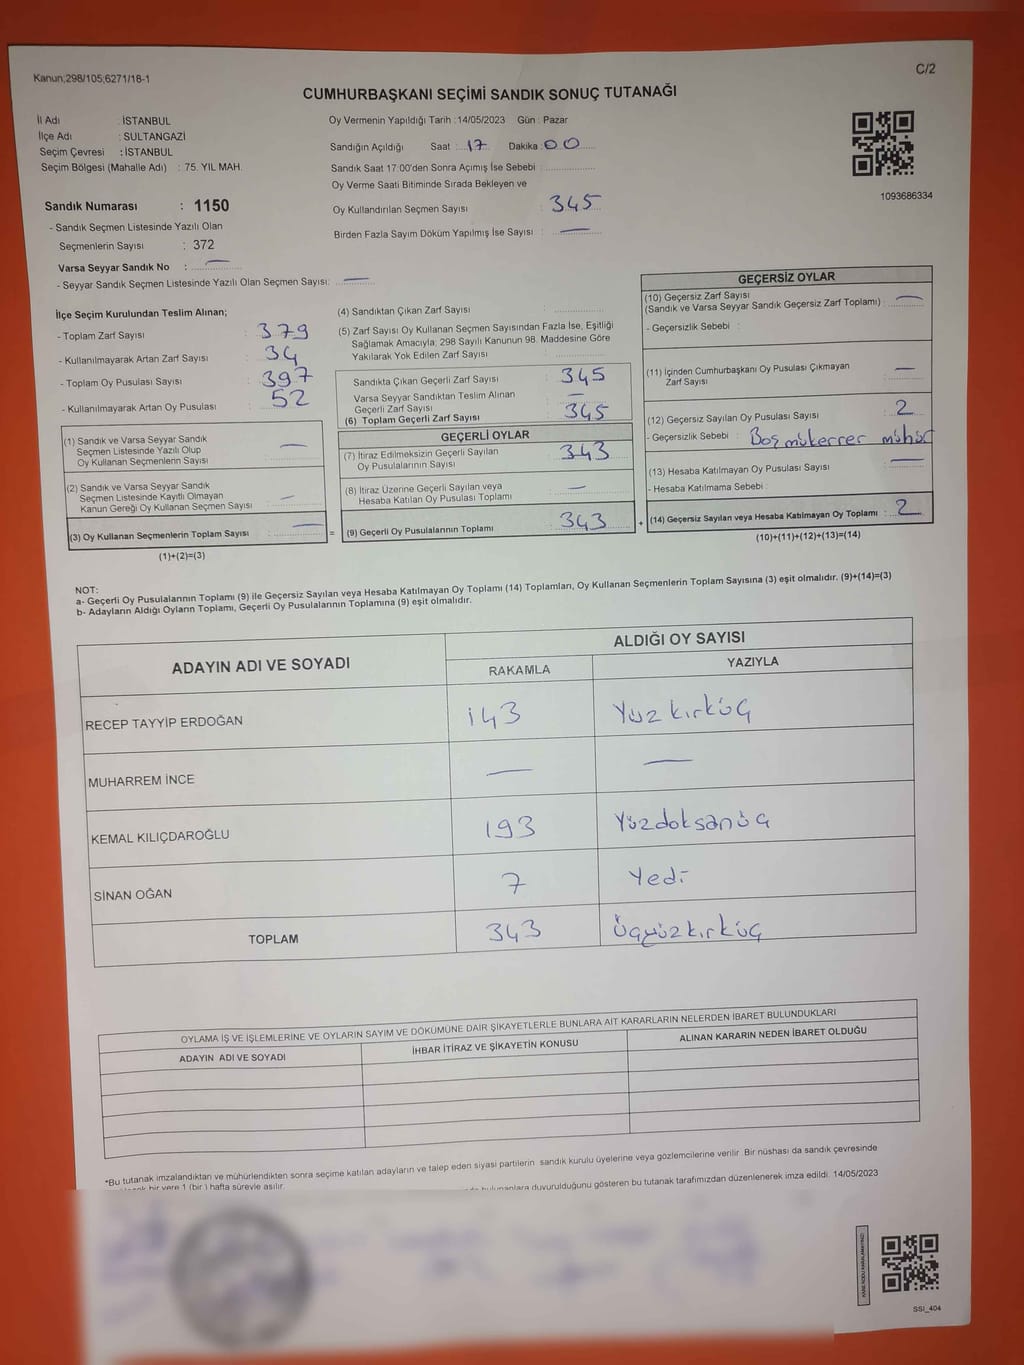 Kanun;298/105;6271/18-1
C/2
CUMHURBAŞKANI SEÇİMİ SANDIK SONUÇ TUTANAĞI
İl Adı : İSTANBUL
İlçe Adı : SULTANGAZİ
Seçim Çevresi : İSTANBUL
Seçim Bölgesi (Mahalle Adı) : 75. YIL MAH.
Sandık Numarası : 1150
- Sandık Seçmen Listesinde Yazılı Olan
Seçmenlerin Sayısı : 372
Varsa Seyyar Sandık No : —
- Seyyar Sandık Seçmen Listesinde Yazılı Olan Seçmen Sayısı: —
Oy Vermenin Yapıldığı Tarih :14/05/2023 Gün : Pazar
Sandığın Açıldığı Saat : 17 Dakika : 00
Sandık Saat 17:00'den Sonra Açımış İse Sebebi :
Oy Verme Saati Bitiminde Sırada Bekleyen ve
Oy Kullandırılan Seçmen Sayısı : 345
Birden Fazla Sayım Döküm Yapılmış İse Sayısı : —
1093686334
İlçe Seçim Kurulundan Teslim Alınan;
- Toplam Zarf Sayısı : 379
- Kullanılmayarak Artan Zarf Sayısı : 34
- Toplam Oy Pusulası Sayısı : 397
- Kullanılmayarak Artan Oy Pusulası : 52
(1) Sandık ve Varsa Seyyar Sandık
Seçmen Listesinde Yazılı Olup
Oy Kullanan Seçmenlerin Sayısı : —
(2) Sandık ve Varsa Seyyar Sandık
Seçmen Listesinde Kayıtlı Olmayan
Kanun Gereği Oy Kullanan Seçmen Sayısı : —
(3) Oy Kullanan Seçmenlerin Toplam Sayısı : —
(1)+(2)=(3)
(4) Sandıktan Çıkan Zarf Sayısı :
(5) Zarf Sayısı Oy Kullanan Seçmen Sayısından Fazla İse, Eşitliği
Sağlamak Amacıyla; 298 Sayılı Kanunun 98. Maddesine Göre
Yakılarak Yok Edilen Zarf Sayısı :
Sandıkta Çıkan Geçerli Zarf Sayısı : 345
Varsa Seyyar Sandıktan Teslim Alınan
Geçerli Zarf Sayısı : —
(6) Toplam Geçerli Zarf Sayısı : 345
GEÇERLİ OYLAR
(7) İtiraz Edilmeksizin Geçerli Sayılan
Oy Pusulalarının Sayısı : 343
(8) İtiraz Üzerine Geçerli Sayılan veya
Hesaba Katılan Oy Pusulası Toplamı : —
= (9) Geçerli Oy Pusulalarının Toplamı : 343 +
GEÇERSİZ OYLAR
(10) Geçersiz Zarf Sayısı
(Sandık ve Varsa Seyyar Sandık Geçersiz Zarf Toplamı) : —
- Geçersizlik Sebebi :
(11) İçinden Cumhurbaşkanı Oy Pusulası Çıkmayan
Zarf Sayısı : —
(12) Geçersiz Sayılan Oy Pusulası Sayısı : 2
- Geçersizlik Sebebi : Boş mükerrer mühür
(13) Hesaba Katılmayan Oy Pusulası Sayısı : —
- Hesaba Katılmama Sebebi :
(14) Geçersiz Sayılan veya Hesaba Katılmayan Oy Toplamı : 2
(10)+(11)+(12)+(13)=(14)
NOT:
a- Geçerli Oy Pusulalarının Toplamı (9) ile Geçersiz Sayılan veya Hesaba Katılmayan Oy Toplamı (14) Toplamları, Oy Kullanan Seçmenlerin Toplam Sayısına (3) eşit olmalıdır. (9)+(14)=(3)
b- Adayların Aldığı Oyların Toplamı, Geçerli Oy Pusulalarının Toplamına (9) eşit olmalıdır.
ADAYIN ADI VE SOYADI
ALDIĞI OY SAYISI
RAKAMLA YAZIYLA
RECEP TAYYİP ERDOĞAN 143 Yüzkırküç
MUHARREM İNCE — —
KEMAL KILIÇDAROĞLU 193 Yüzdoksanüç
SİNAN OĞAN 7 Yedi
TOPLAM 343 Üçyüzkırküç
OYLAMA İŞ VE İŞLEMLERİNE VE OYLARIN SAYIM VE DÖKÜMÜNE DAİR ŞİKAYETLERLE BUNLARA AİT KARARLARIN NELERDEN İBARET BULUNDUKLARI
ADAYIN ADI VE SOYADI İHBAR İTİRAZ VE ŞİKAYETİN KONUSU ALINAN KARARIN NEDEN İBARET OLDUĞU
*Bu tutanak imzalandıktan ve mühürlendikten sonra seçime katılan adayların ve talep eden siyasi partilerin sandık kurulu üyelerine veya gözlemcilerine verilir. Bir nüshası da sandık çevresinde
bir yere 1 (bir) hafta süreyle asılır. bulunanlara duyurulduğunu gösteren bu tutanak tarafımızdan düzenlenerek imza edildi. 14/05/2023
SSI_404